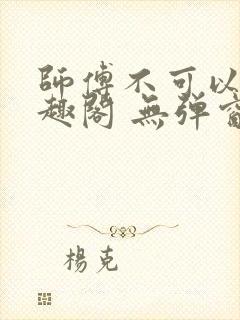 師傅不可以
趣閣 無弹窗
楊克